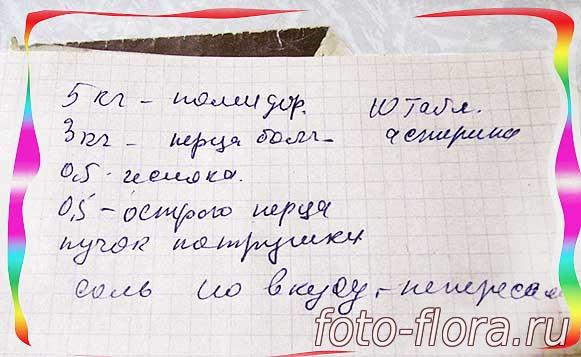 5 кг – помидор.    10 табл.
3 кг – перца болг –    асперина
0,5 – чеснока.
0,5 – острого перца
пучок петрушки
соль по вкусу, – непереса
foto-flora.ru